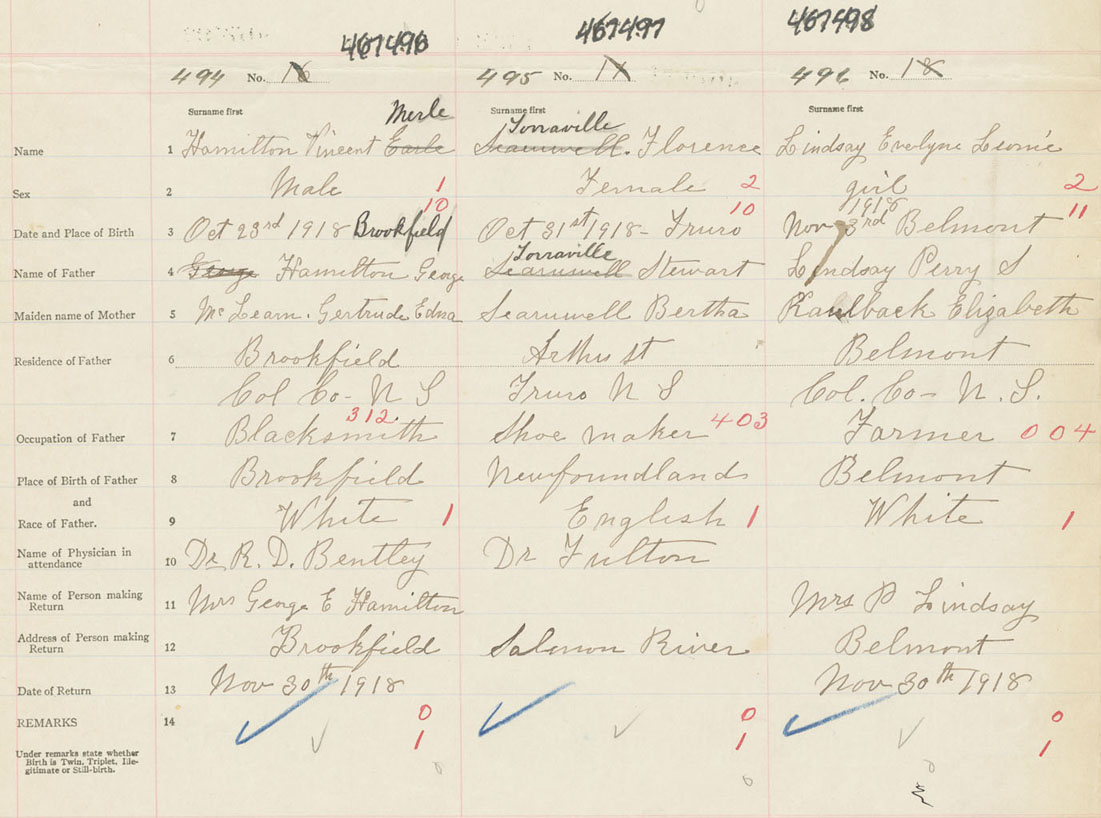 467496 467497 467498
494 No. 16 495 No. 17 496 No. 18
Surname first Merle Surname first Torraville Surname first
Name 1 Hamilton Vincent Earle Scamwell. Florence Lindsay Evelyne Leonie
Sex 2 Male 1 Female 2 girl 2
10 10 1918 11
Date and Place of Birth 3 Oct 23rd 1918 Brookfield Oct 31st 1918 - Truro Nov 3rd Belmont
Torraville
Name of Father 4 George Hamilton George Scamwell Stewart Lindsay Perry S
Maiden name of Mother 5 McLearn. Gertrude Edna Scamwell Bertha Kaulback Elizabeth
Residence of Father 6 Brookfield Arthur St Belmont
Col Co- N S Truro N S Col. Co- N.S.
312.
Occupation of Father 7 Blacksmith Shoe maker 403 Farmer 004
Place of Birth of Father 8 Brookfield Newfoundland Belmont
and
Race of Father. 9 White 1 English 1 White 1
Name of Physician in
attendance 10 Dr. R. D. Bentley Dr Fulton
Name of Person making
Return 11 Mrs George E Hamilton Mrs P Lindsay
Address of Person making
Return 12 Brookfield Salmon River Belmont
Date of Return 13 Nov 30th 1918 Nov 30th 1918
REMARKS 14 0 0 0
1 1 1
Under remarks state whether
Birth is Twin, Triplet, Ille-
gitimate or Still-birth.